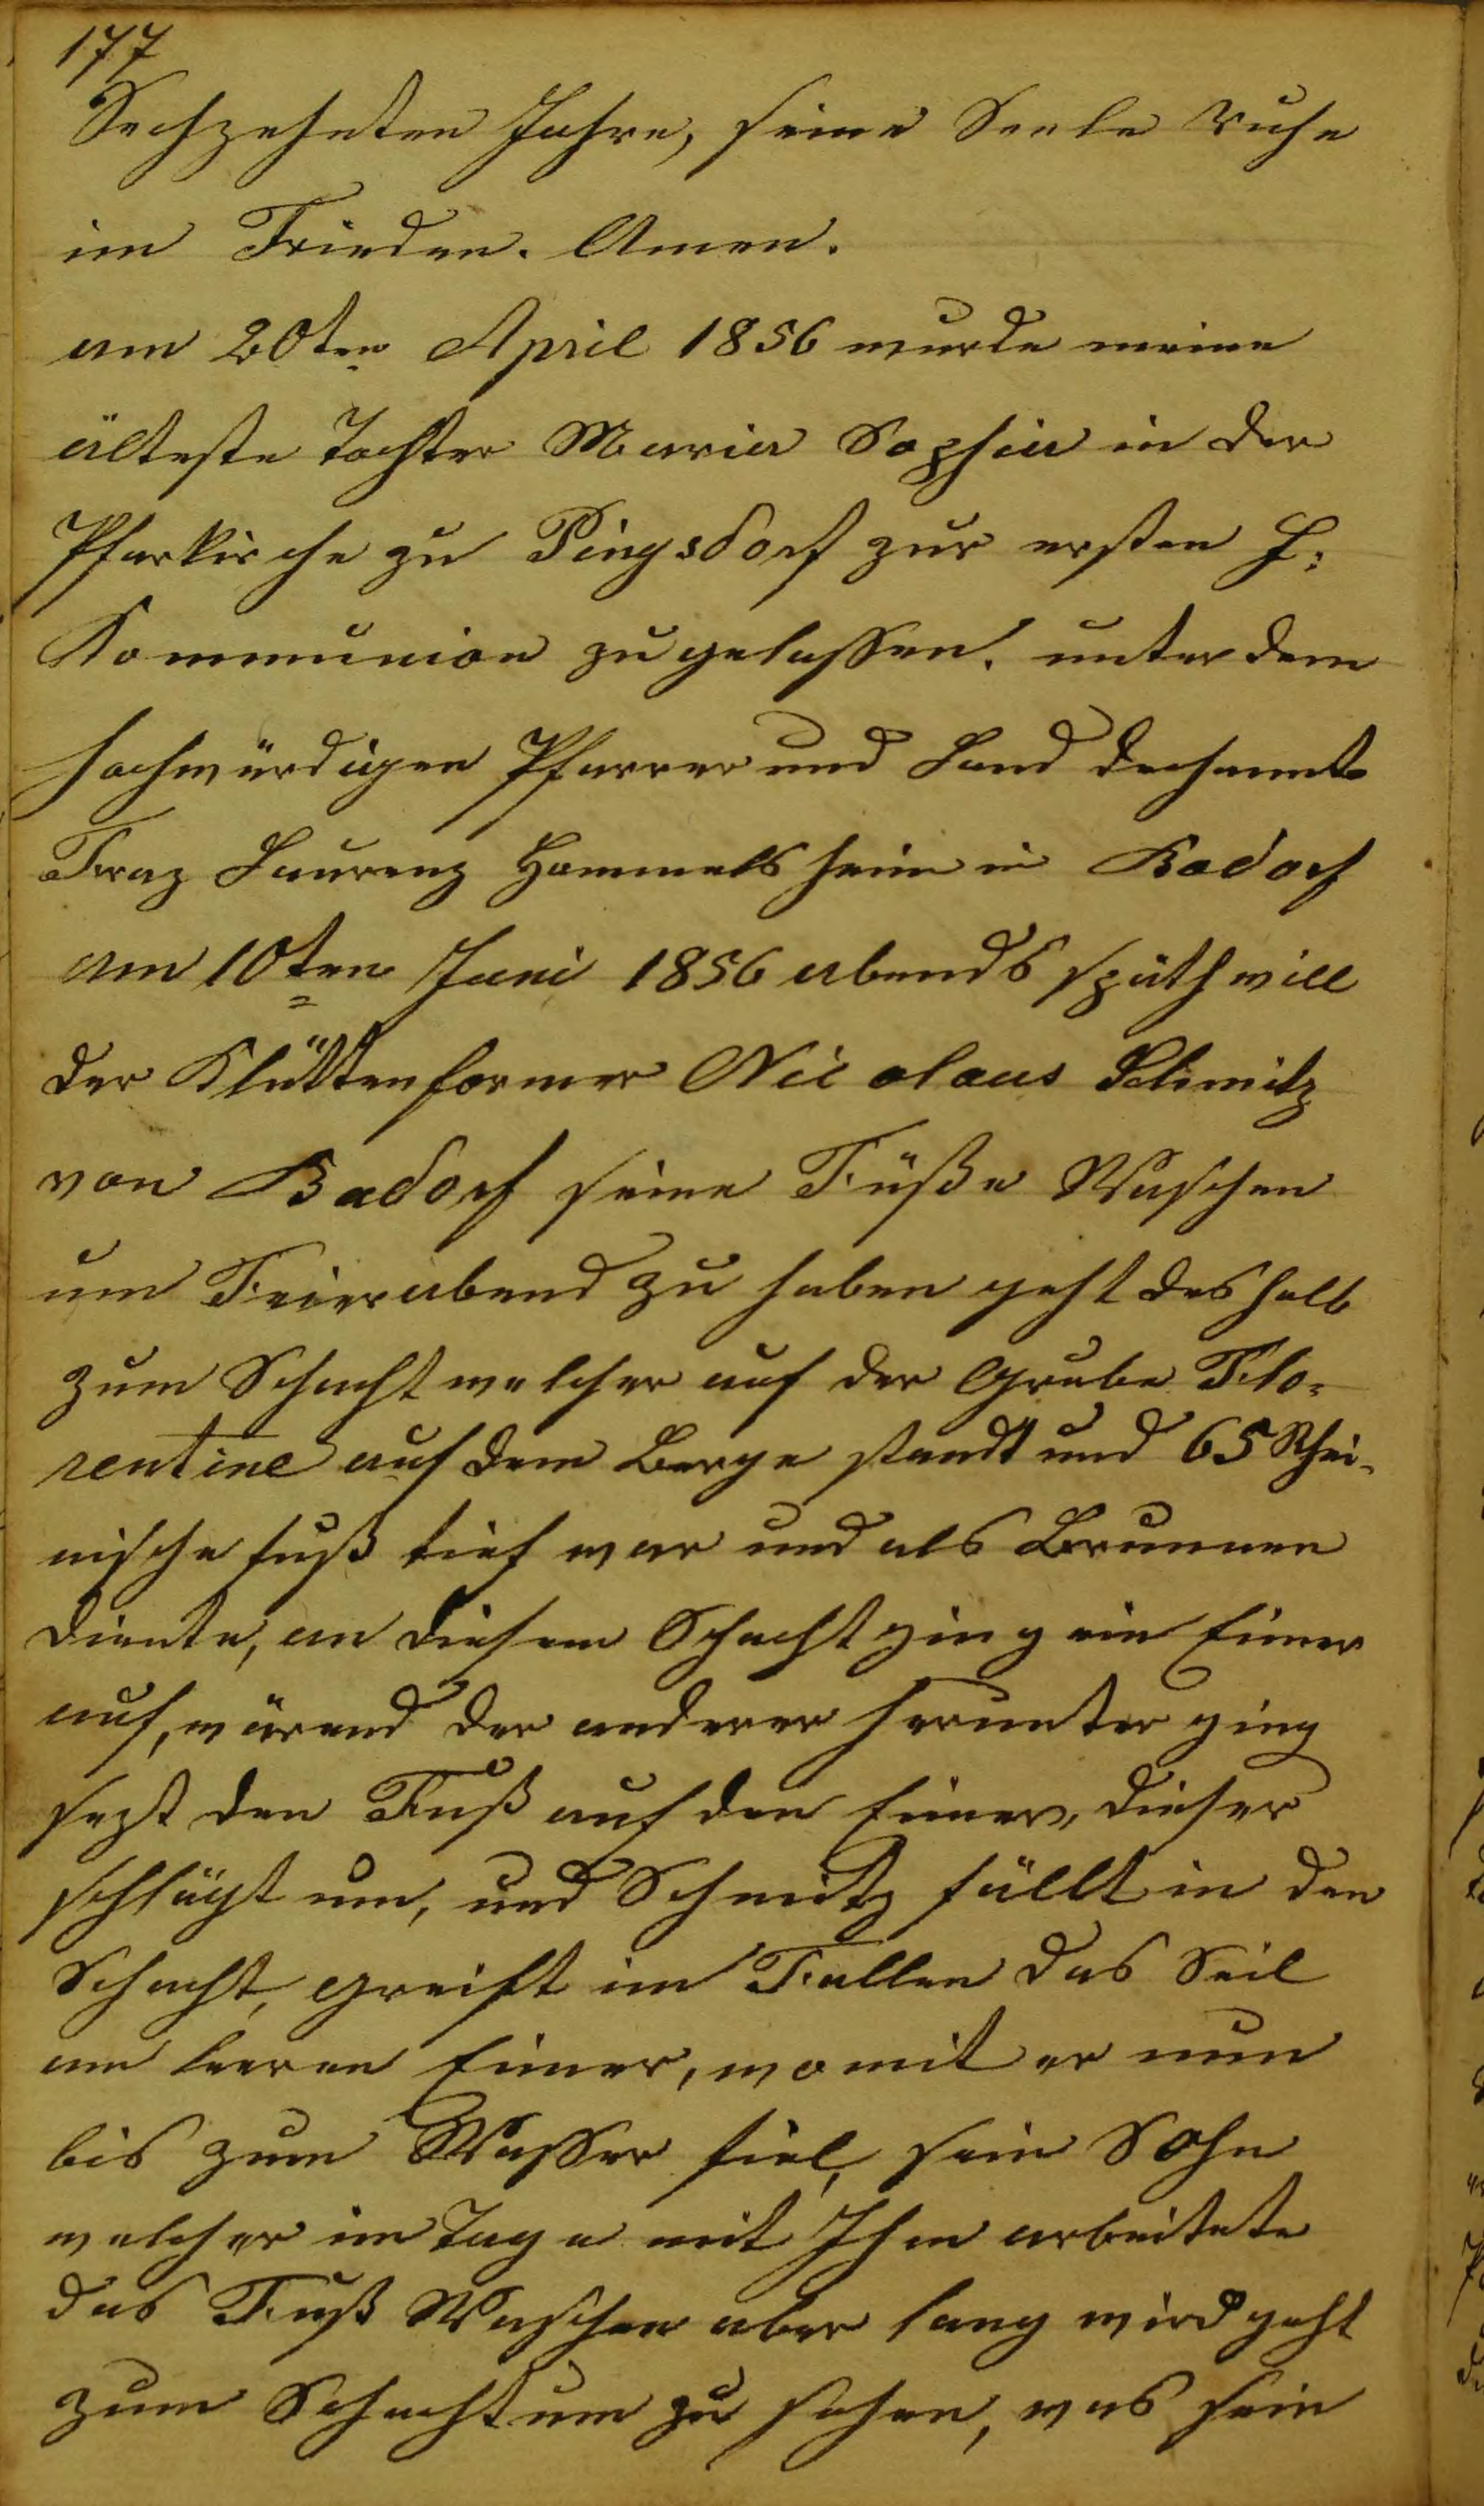 177
Sechzehnten Jahre, seine Seele ruhe
im Frieden. Amen.
am 20ten April 1856 wurde meine
älteste Tochter Maria Sophia in der
Pfarkirche zu Pingsdorf zur ersten H:
Kommunion zugelassen. unter dem
hochwürdigen Pfarrer und Land dechannt
Fraz Laurenz Hommelsheim in Badorf
am 10ten Juni 1856 abends späth will
der Klüttenformer Nicolaus Schmitz
von Badorf seine Füße Waschen
um Feierabend zu haben geht deshalb
zum Schacht welcher auf der Grube Flo-
rentine auf dem Berge standt und 65 Rhei-
nische fuß tief war und als Brunnen
diente, an diesem Schacht ging ein Eimer
auf, wärend der anderer herunter ging
sezt den Fuß auf den Eimer, dieser
schlägt um, und Schmitz fällt in den
Schacht, greift im Fallen das Seil
am leeren Eimer, womit er nun
bis zum Wasser fiel, sein Sohn
welcher im Tage mit Ihm arbeitete
das Fuß Waschen aber lang wird geht
zum Schacht um zu sehen, was sein